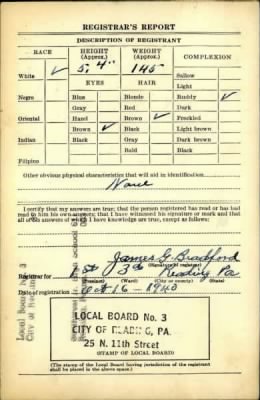 REGISTRAR'S REPORT
DESCRIPTION OF REGISTRANT
RACE HEIGHT (Approx.) WEIGHT (Approx.) COMPLEXION
White ✓ 5, 4" 145 Sallow
EYES HAIR Light
Negro Blue Blonde Ruddy ✓
Gray Red Dark
Oriental Hazel Brown ✓ Freckled
Brown ✓ Black Light brown
Indian Black Gray Dark brown
Bald Black
Filipino
Other obvious physical characteristics that will aid in identification
None
I certify that my answers are true; that the person registered has read or has had
read to him his own answers; that I have witnessed his signature or mark and that
all of his answers of which I have knowledge are true, except as follows:
James G. Bradford
(Signature of registrar)
Registrar for 1st 3rd Reading Pa
(Ward) (City or county) (State)
Date of registration Oct 16 - 1940
Local Board No. 3
LOCAL BOARD No. 3
CITY OF READING, PA.
25 N. 11th Street
(STAMP OF LOCAL BOARD)
(The stamp of the Local Board having jurisdiction of the registrant
shall be placed in the above space.)